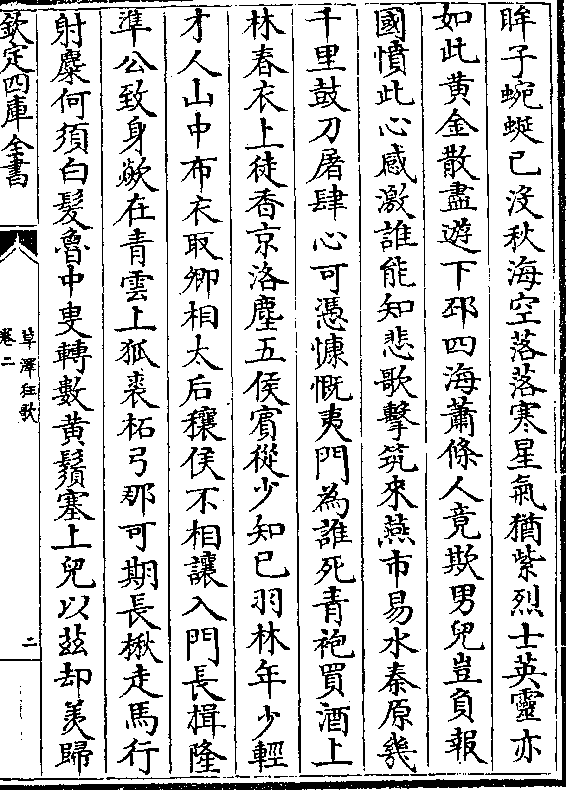 眸子蜿蜒已沒秋海空落落寒星氣猶紫烈士英靈亦
如此黄金散盡遊下邳四海蕭條人竟欺男兒豈負報
國憤此心感激誰能知悲歌擊筑來燕市易水秦原幾
千里鼓刀屠肆心可憑慷慨夷門為誰死青袍買酒上
林春衣上徒香京洛塵五侯賓從少知已羽林年少輕
才人山中布衣取卿相太后穰侯不相讓入門長揖隆
準公致身歘在青雲上狐裘柘弓那可期長楸走馬行
射麋何須白髮魯中叟轉數黄鬚塞上兒以兹却羨歸
欽定四庫全書
草澤狂歌
卷二
二